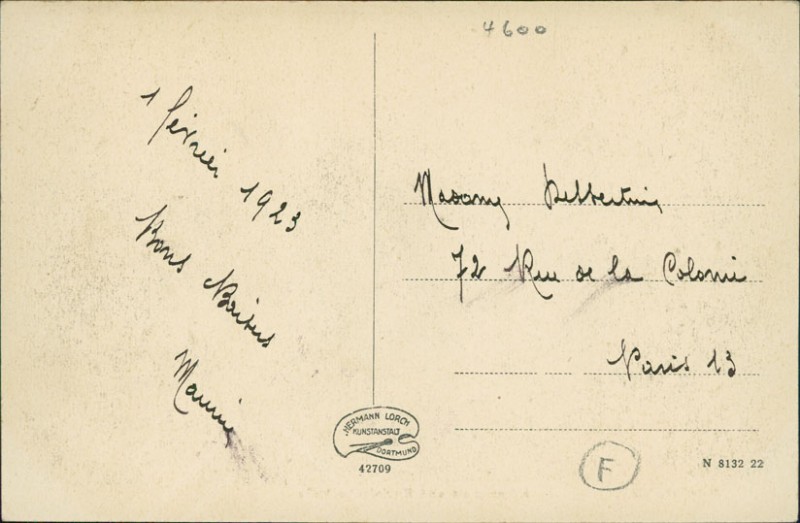 4600
1 février 1923
Bons Baisers
Maurice
Madame
72 Rue de la Colonie
Paris 13
HERMANN LORCH
KUNSTANSTALT
DORTMUND
42709
F
N 8132 22